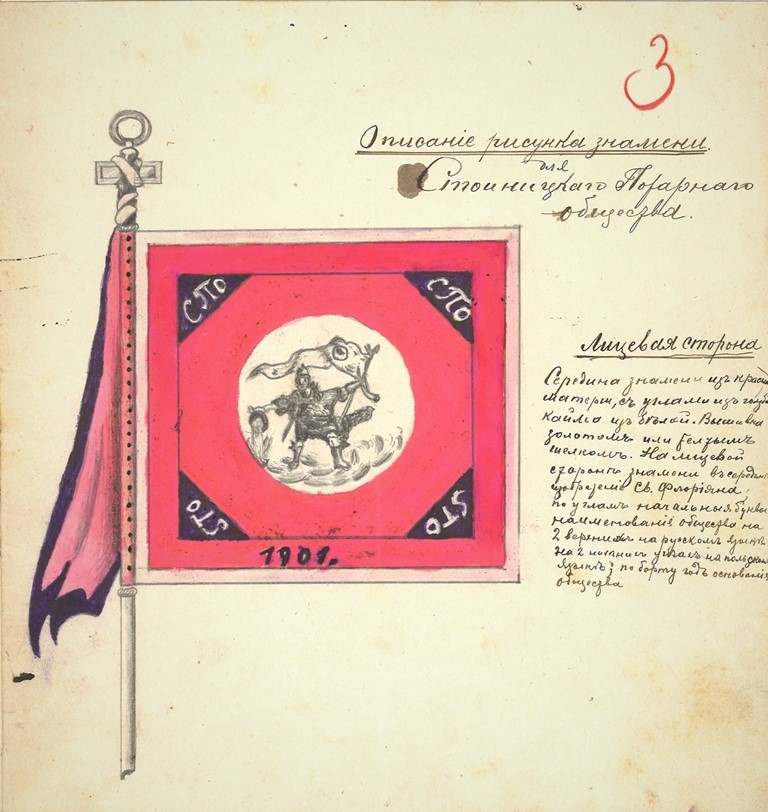 3
Описаніе рисунка знамени
для
Стоницкаго Пожарнаго
общества.
СПО
СПО
STO
STO
1901.
Лицевая сторона
Середина знамени изъ
матеріи, съ углами изъ
кайма изъ бѣлой. Вышивка
золотомъ или желтымъ
шелкомъ. На лицевой
сторонѣ знамени въ
изображеніе Св. Флоріяна,
по угламъ начальная буквы
наименованія общества на
2 верхнихъ на русскомъ языкѣ
на 2 нижнихъ углахъ на
языкѣ; по борту годъ основанія
общества